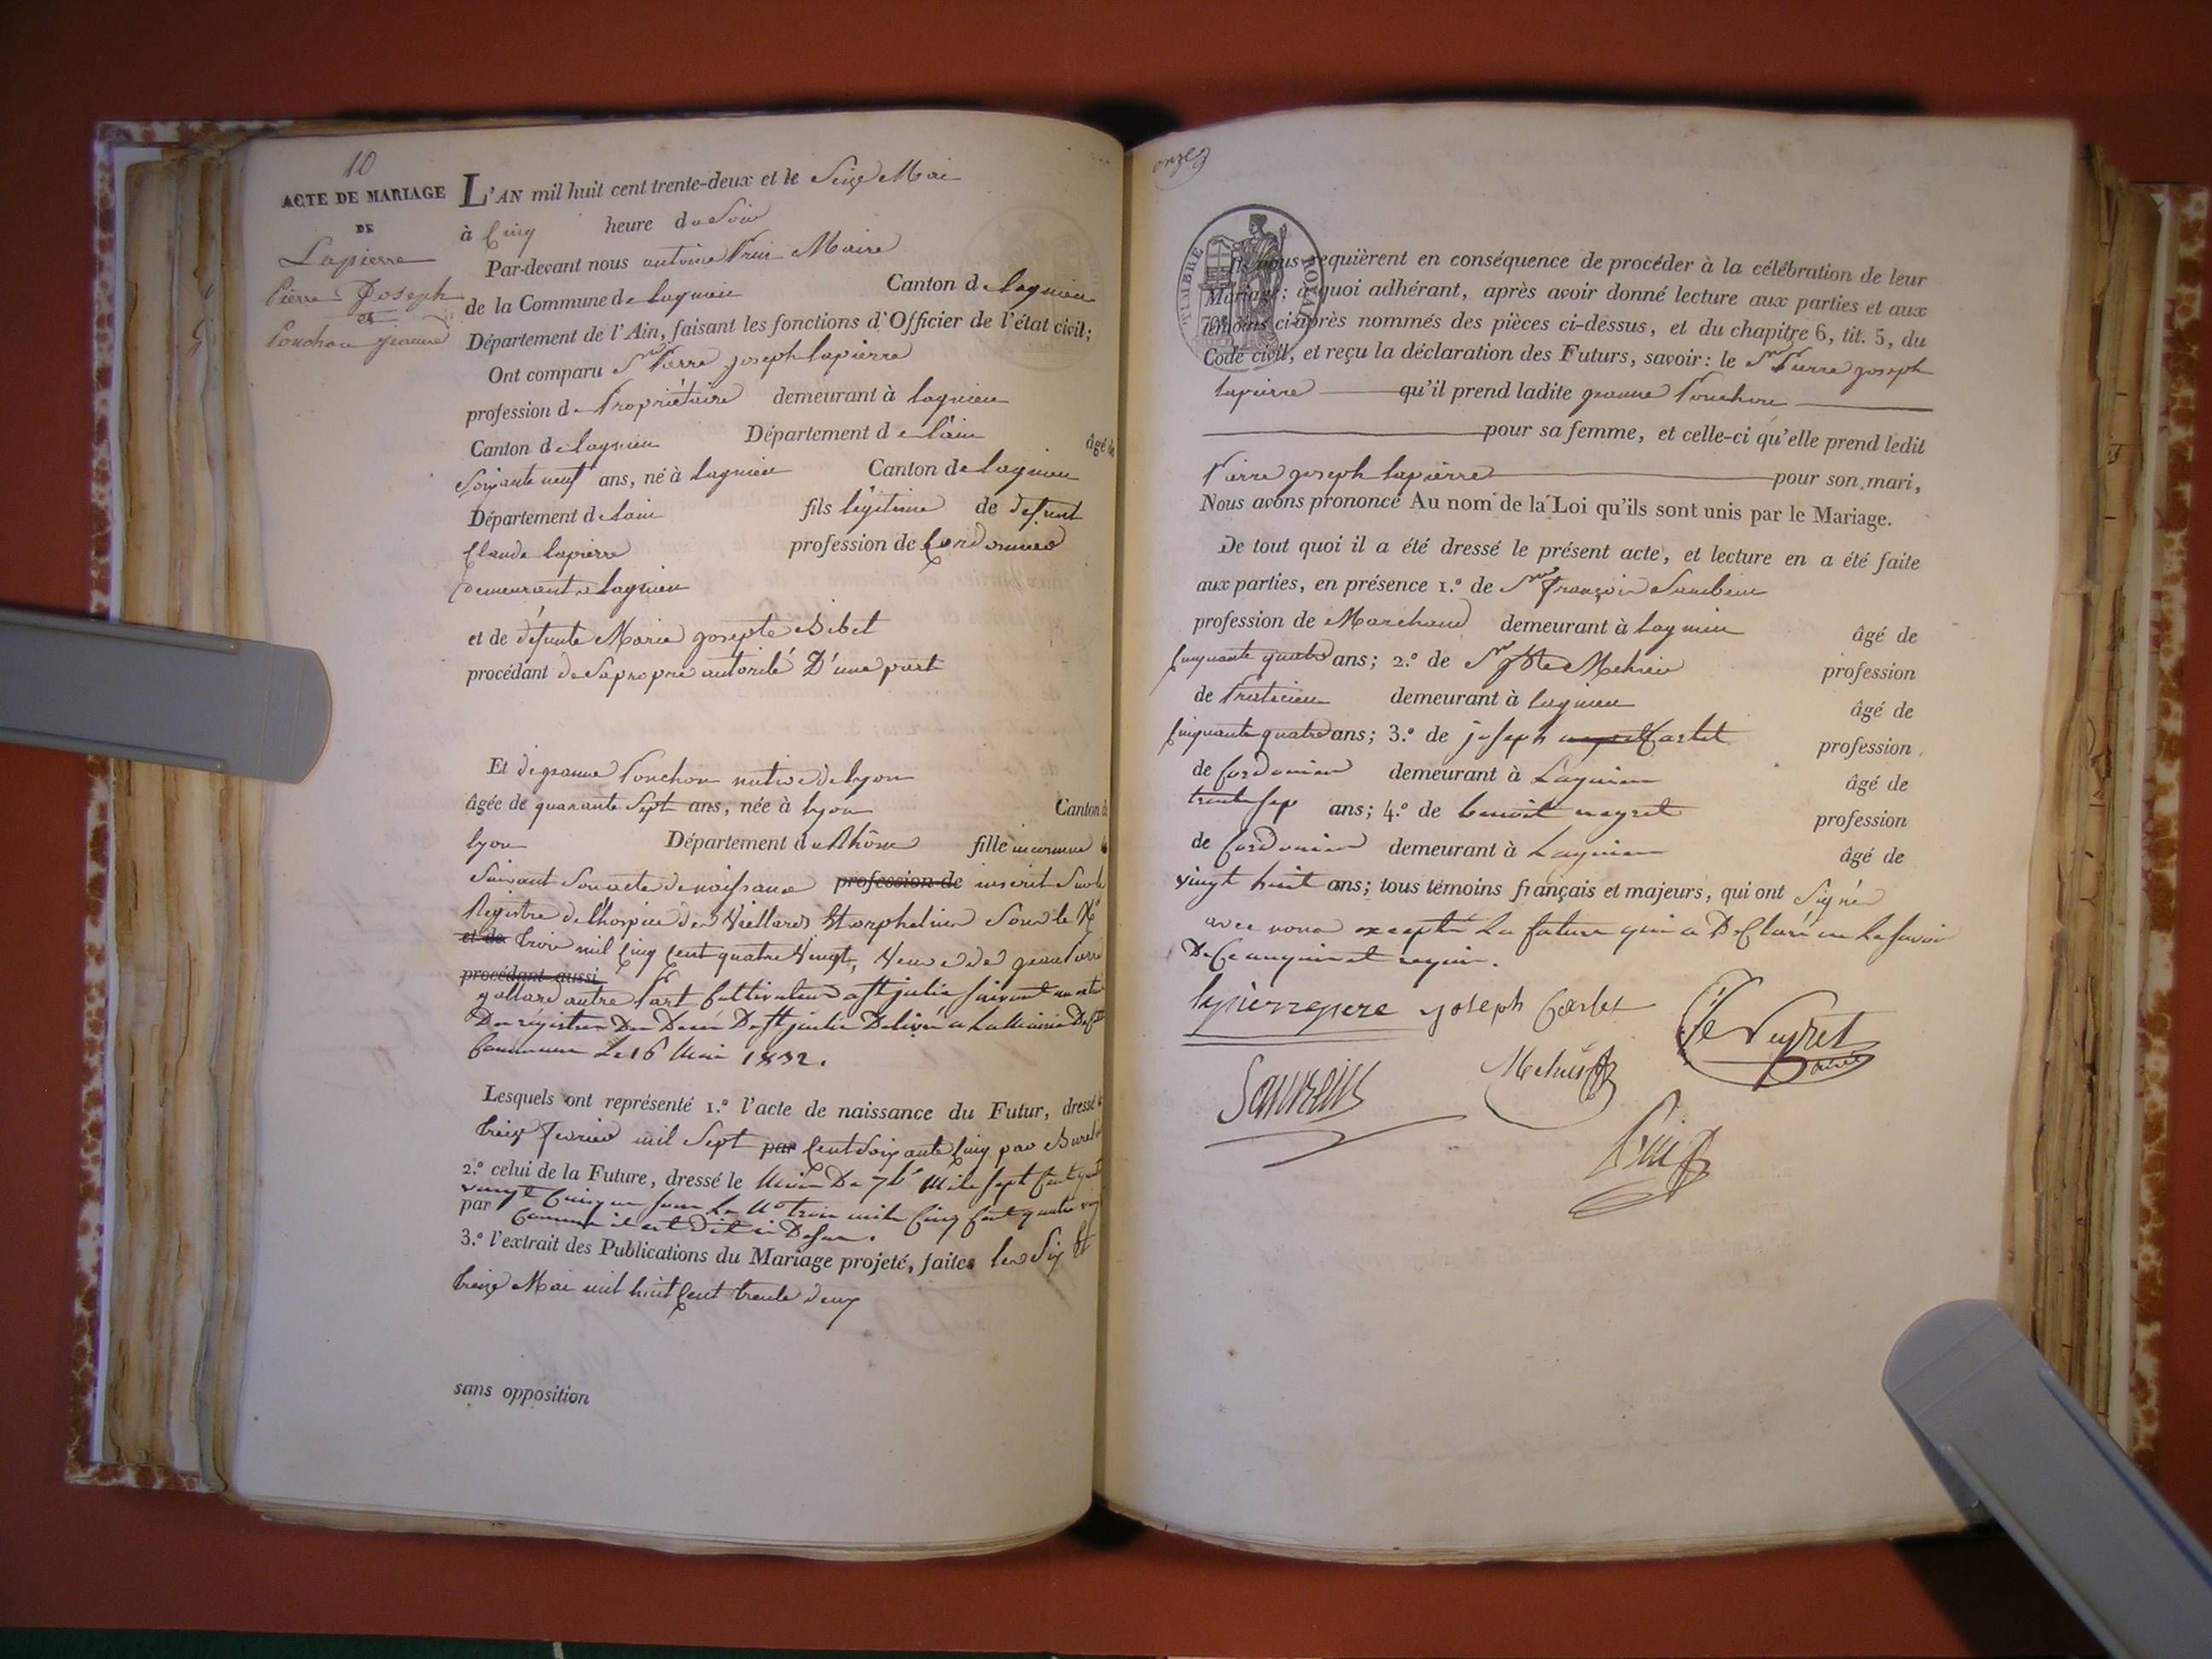 10
ACTE DE MARIAGE
DE
Lapierre
Pierre Joseph
et
Ponchon jeanne
L'AN mil huit cent trente-deux et le Seize Mai
à Cinq heure du Soir
Par-devant nous antoine Maire
de la Commune de lagnieu Canton de lagnieu
Département de l'Ain, faisant les fonctions d'Officier de l'état civil;
Ont comparu Sr Pierre joseph lapierre
profession de Propriétaire demeurant à lagnieu
Canton de lagnieu Département de l'ain âgé de
Soixante neuf ans, né à lagnieu Canton de lagnieu
Département de lain fils légitime de defunt
Claude lapierre profession de Cordonnier
demeurant a lagnieu
et de défunte Marie josephte Bibet
procédant de Sa propre autorité D'une part
Et de jeanne Ponchon native de lyon
âgée de quarante Sept ans, née à lyon Canton de
lyon Département du Rhône fille inconnue
Suivant Son acte de naissance profession de inscrit Sur le
Registre de l'hospice des Viellards Et orphelins Sous le No
et de trois mil Cinq Cent quatre Vingt, Veuve de jean Pierre
procédant aussi
gollard autre Part Cultivateur a St julie Suivant un extrait
Des régistres Des Décès De St julie Délivré a La Mairie De
Commune Le 16 Mai 1832.
Lesquels ont représenté 1.º l'acte de naissance du Futur, dressé le
treize fevrier mil Sept par Cent Soixante Cinq par Buret
2.º celui de la Future, dressé le De 7bre Mil Sept Cent quatre
vingt Cinq Sous Le No trois mille Cinq Cent quatre vingt
par Comme il est Dit ci Dessus.
3.º l'extrait des Publications du Mariage projeté, faites les Six Et
treize Mai mil huit Cent trente deux
sans opposition
onze
TIMBRE ROYAL
70
Ils nous requièrent en conséquence de procéder à la célébration de leur
Mariage; à quoi adhérant, après avoir donné lecture aux parties et aux
témoins ci-après nommés des pièces ci-dessus, et du chapitre 6, tit. 5, du
Code civil, et reçu la déclaration des Futurs, savoir: le Sr Pierre joseph
lapierre qu'il prend ladite jeanne Ponchon
pour sa femme, et celle-ci qu'elle prend ledit
Pierre joseph lapierre pour son mari,
Nous avons prononcé Au nom de la Loi qu'ils sont unis par le Mariage.
De tout quoi il a été dressé le présent acte, et lecture en a été faite
aux parties, en présence 1.º de Sr françois
profession de Marchand demeurant à lagnieu âgé de
Cinquante quatre ans; 2.º de Sr jBte profession
de Praticien demeurant à lagnieu âgé de
Cinquante quatre ans; 3.º de joseph Carlet profession
de Cordonier demeurant à Lagnieu âgé de
trente sept ans; 4.º de benoit neyret profession
de Cordonier demeurant à Lagnieu âgé de
vingt huit ans; tous témoins français et majeurs, qui ont Signé
avec nous excepté La future qui a Déclaré ne Le Savoir
De Ce enquise et requise.
lapierre pere joseph Carlet
Neyret